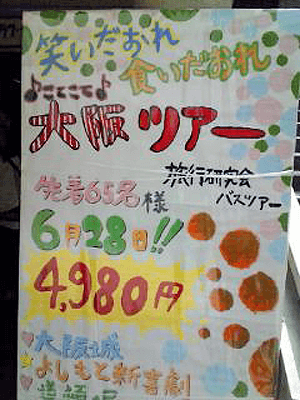 笑いだおれ
食いだおれ
♪こてこて♪
大阪ツアー
旅行研究会
バスツアー
先着65名様
6月28日!!
4,980円
大阪城
よしもと新喜劇
道頓堀